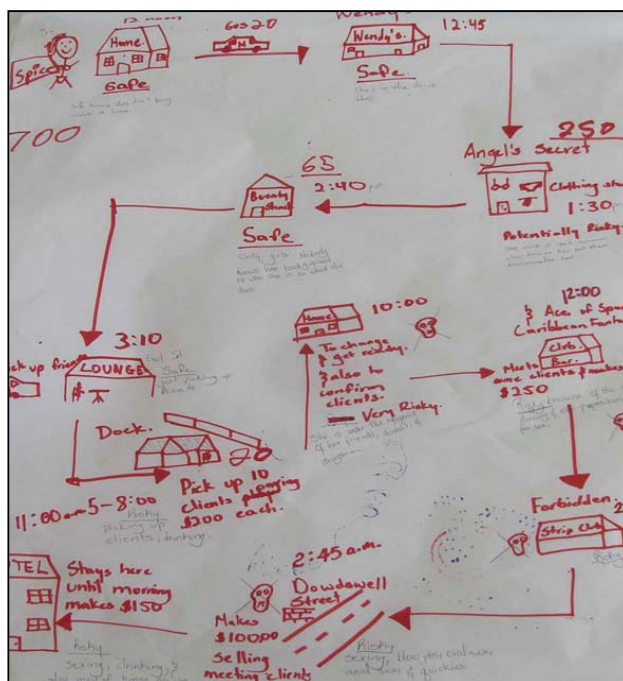 12 noon
Spice
700
Home
Safe
Gas 20
Wendy's
Wendy's.
12:45
Safe
250
Angel's Secret
Clothing st
1:30 pm
Potentially Risky.
65
2:40 pm
Beauty
Shack
Safe
Only girls. Nobody
knows her background
or who she is or what she
does.
3:10
ck up frien
LOUNGE
Safe
just picking up
friends
Dock.
20
Pick up 10
clients
$200 each.
11:00am 5-8:00
Risky
picking up
clients, drinking.
10:00
Home
To change
& get ready.
& also to
confirm
clients.
Very Risky.
She is under the
of her friends,
12:00
& Ace of Spa
Caribbean Fanta
Club.
Bar.
Meets
some clients & makes
$250
Risky because of the
Forbidden.
2
Strip Club
Risky
2:45 a.m.
Dowdswell
Street
Makes
$10000
selling
meeting clients
Risky
sexing, blow jobs,
anal sex & quickies
TEL
Stays here
until morning
makes $150
Risky
sexing, drinking, &